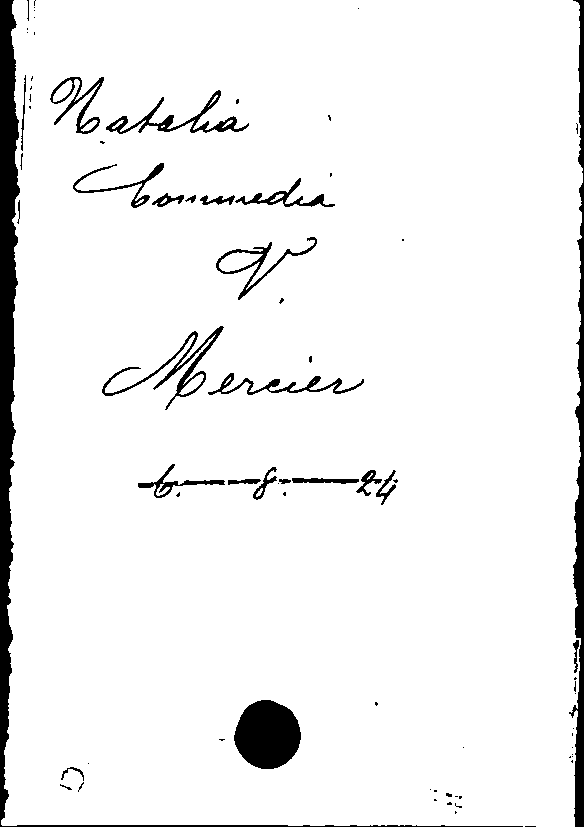 Natalia
Commedia
V.
Mercier
6. — 8. — 24